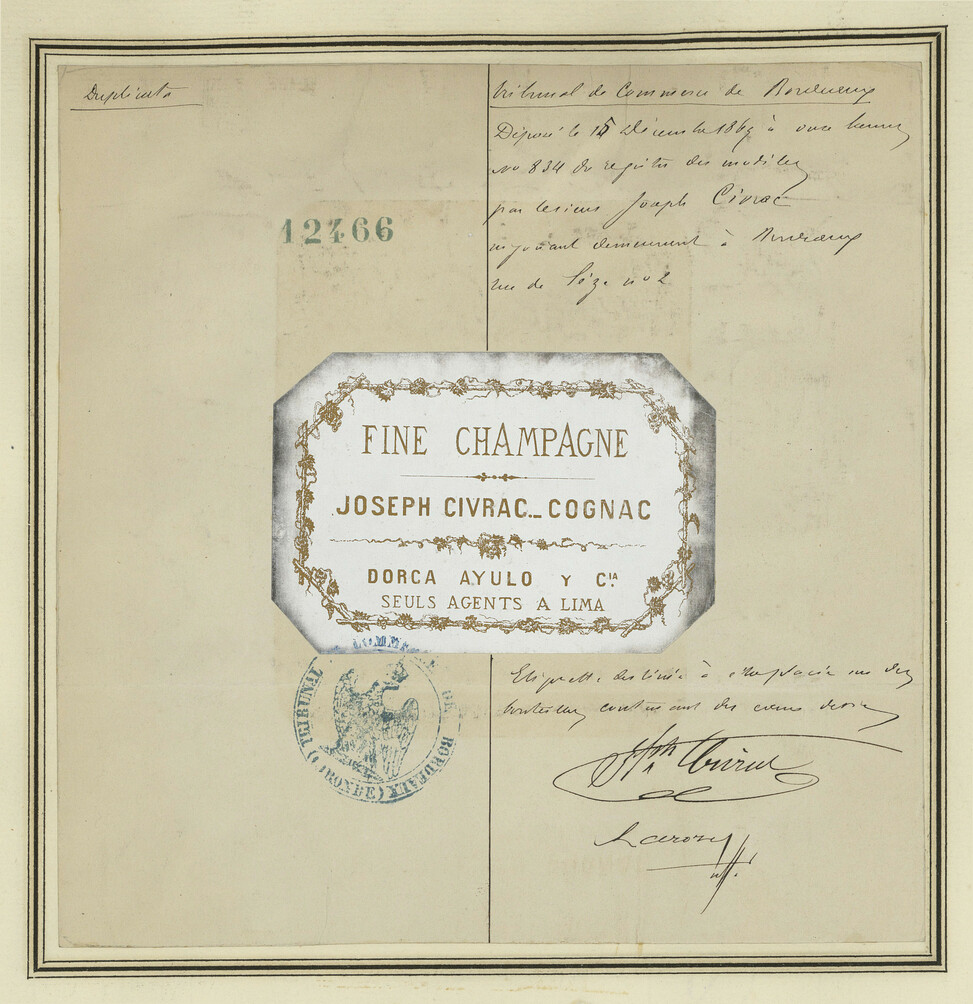 Duplicata
Tribunal de Commerce de Bordeaux
Déposé le 15 Décembre 1869 à onze heures
no 834 du registre des modèles
par le sieur Joseph Civrac
négociant demeurant à Bordeaux
rue de Sèze no 2
12466
FINE CHAMPAGNE
JOSEPH CIVRAC_ COGNAC
DORCA AYULO Y CIA.
SEULS AGENTS A LIMA
TRIBUNAL DE COMMERCE DE BORDEAUX (GIRONDE)
Etiquette destinée à être placée sur des
bouteilles contenant des
Jph Civrac